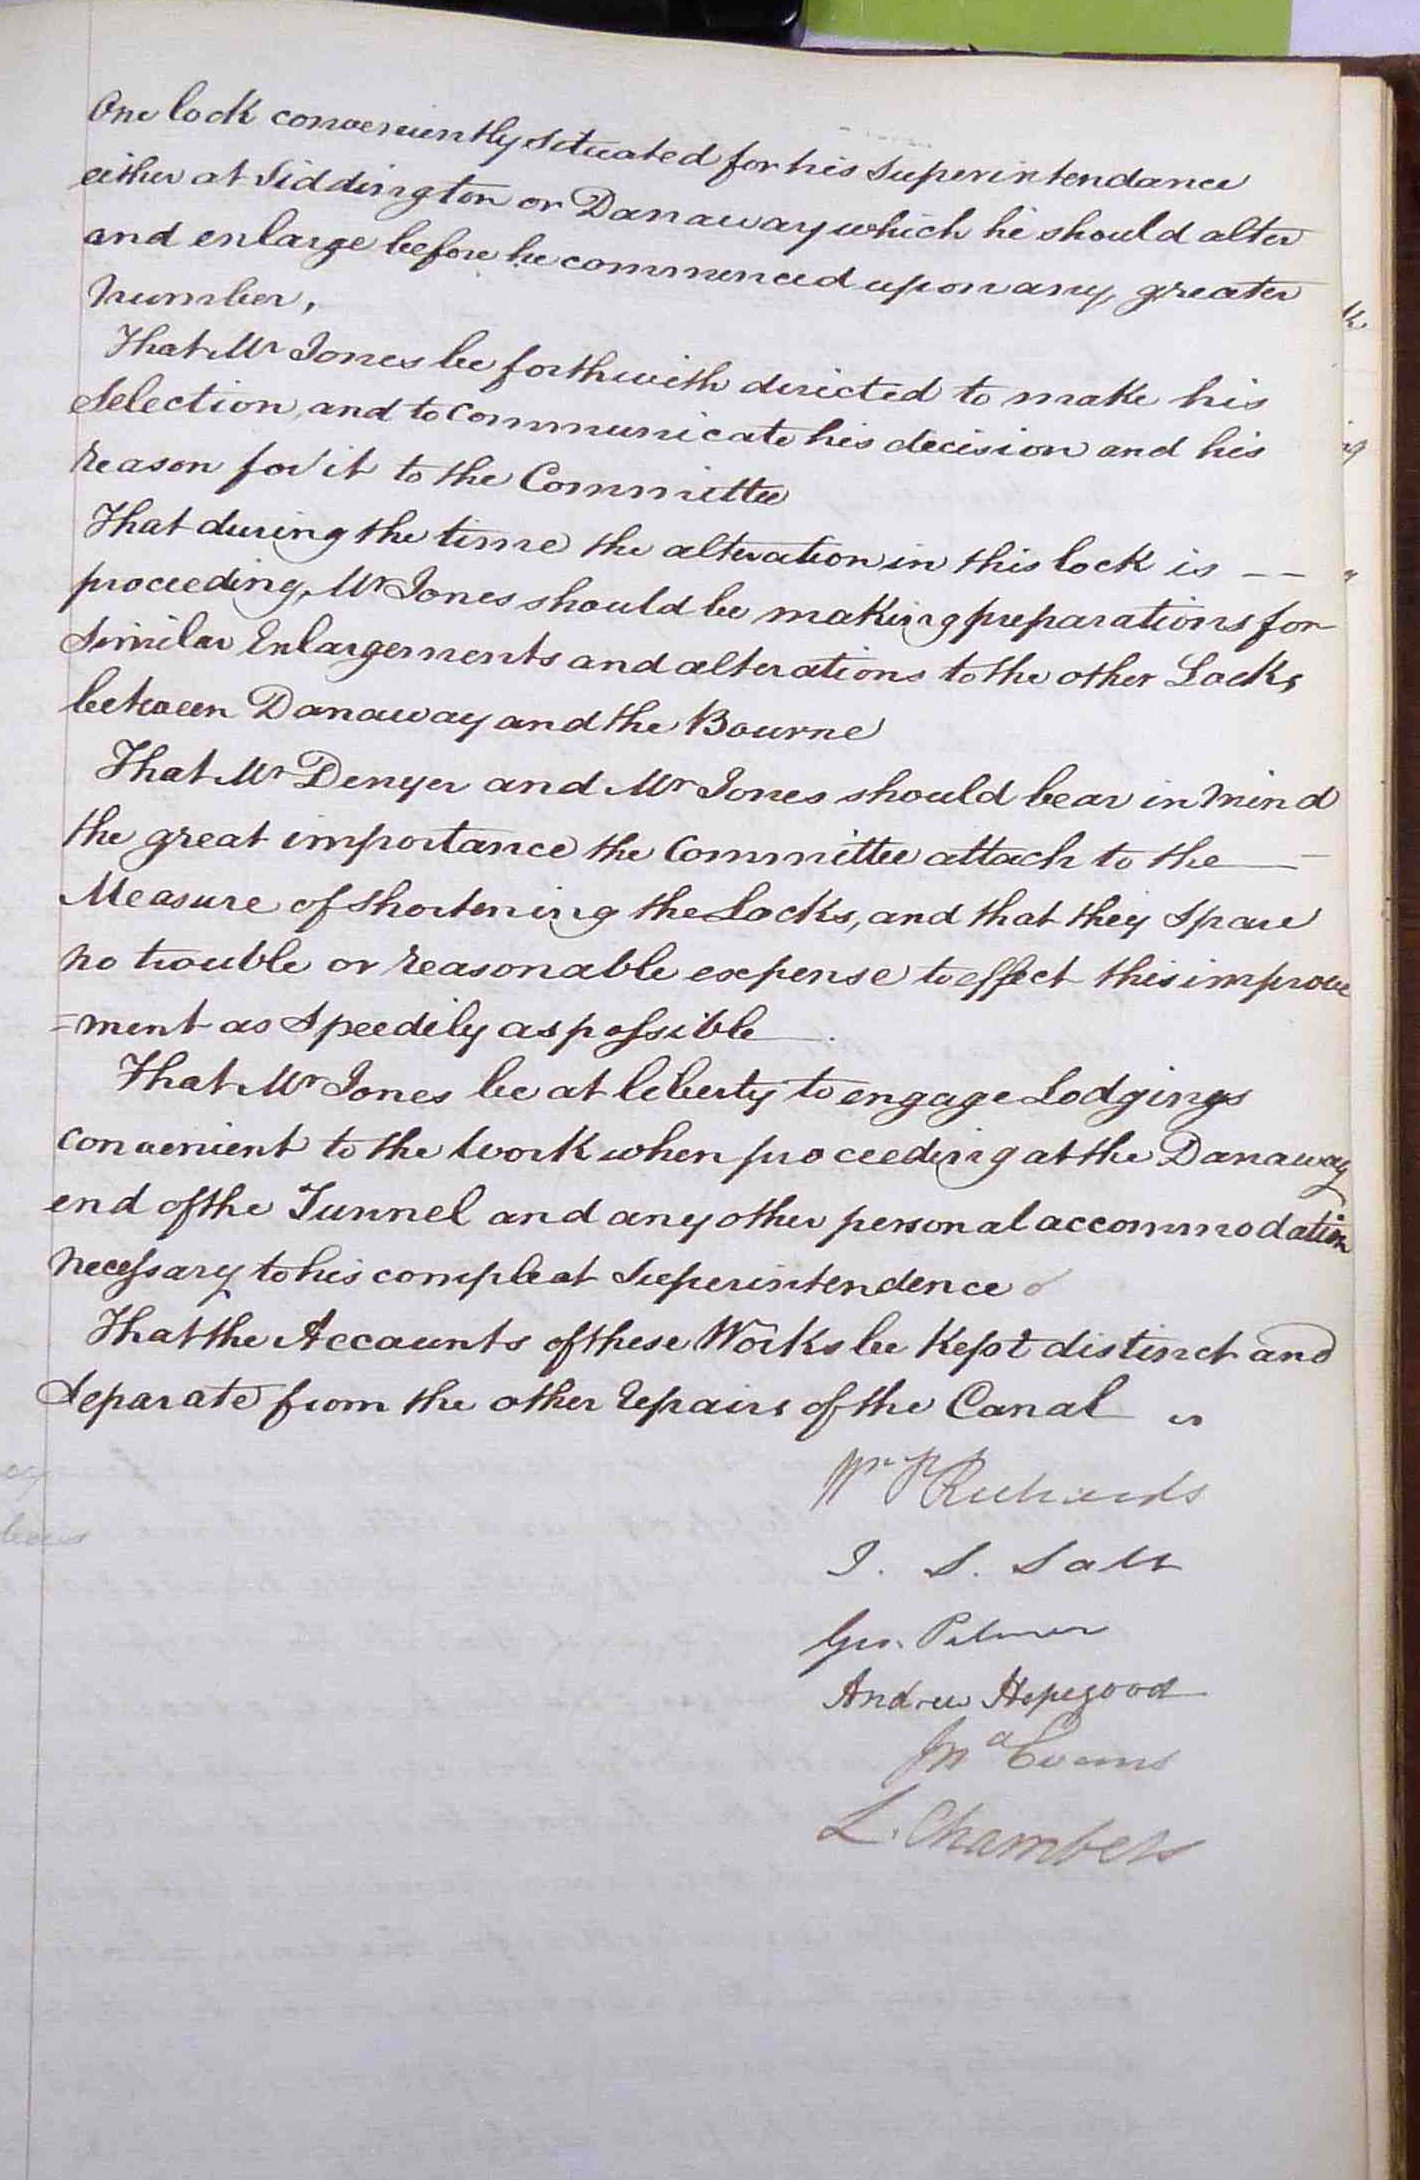 One lock conveniently situated for his Superintendance
either at Siddington or Danaway which he should alter
and enlarge before he commenced upon any, greater
Number,
That Mr Jones be forthwith directed to make his
Selection, and to Communicate his decision and his
reason for it to the Committee
That during the time the alteration in this lock is --
proceeding, Mr Jones should be making preparations for
Similar Enlargements and alterations to the other Locks
between Danaway and the Bourne
That Mr Denyer and Mr Jones should bear in Mind
the great importance the Committee attach to the
Measure of shortening the Locks, and that they Spare
no trouble or reasonable expense to effect this improve
=ment as Speedily as possible
That Mr Jones be at liberty to engage Lodgings
convenient to the Work when proceeding at the Danaway
end of the Tunnel and any other personal accommodation
necessary to his compleat Superintendence
That the Accounts of these Works be Kept distinct and
Separate from the other repairs of the Canal
Wm P Richards
J. S. Salt
Geo. Palmer
Andrew Hopegood
Evans
L. Chambers